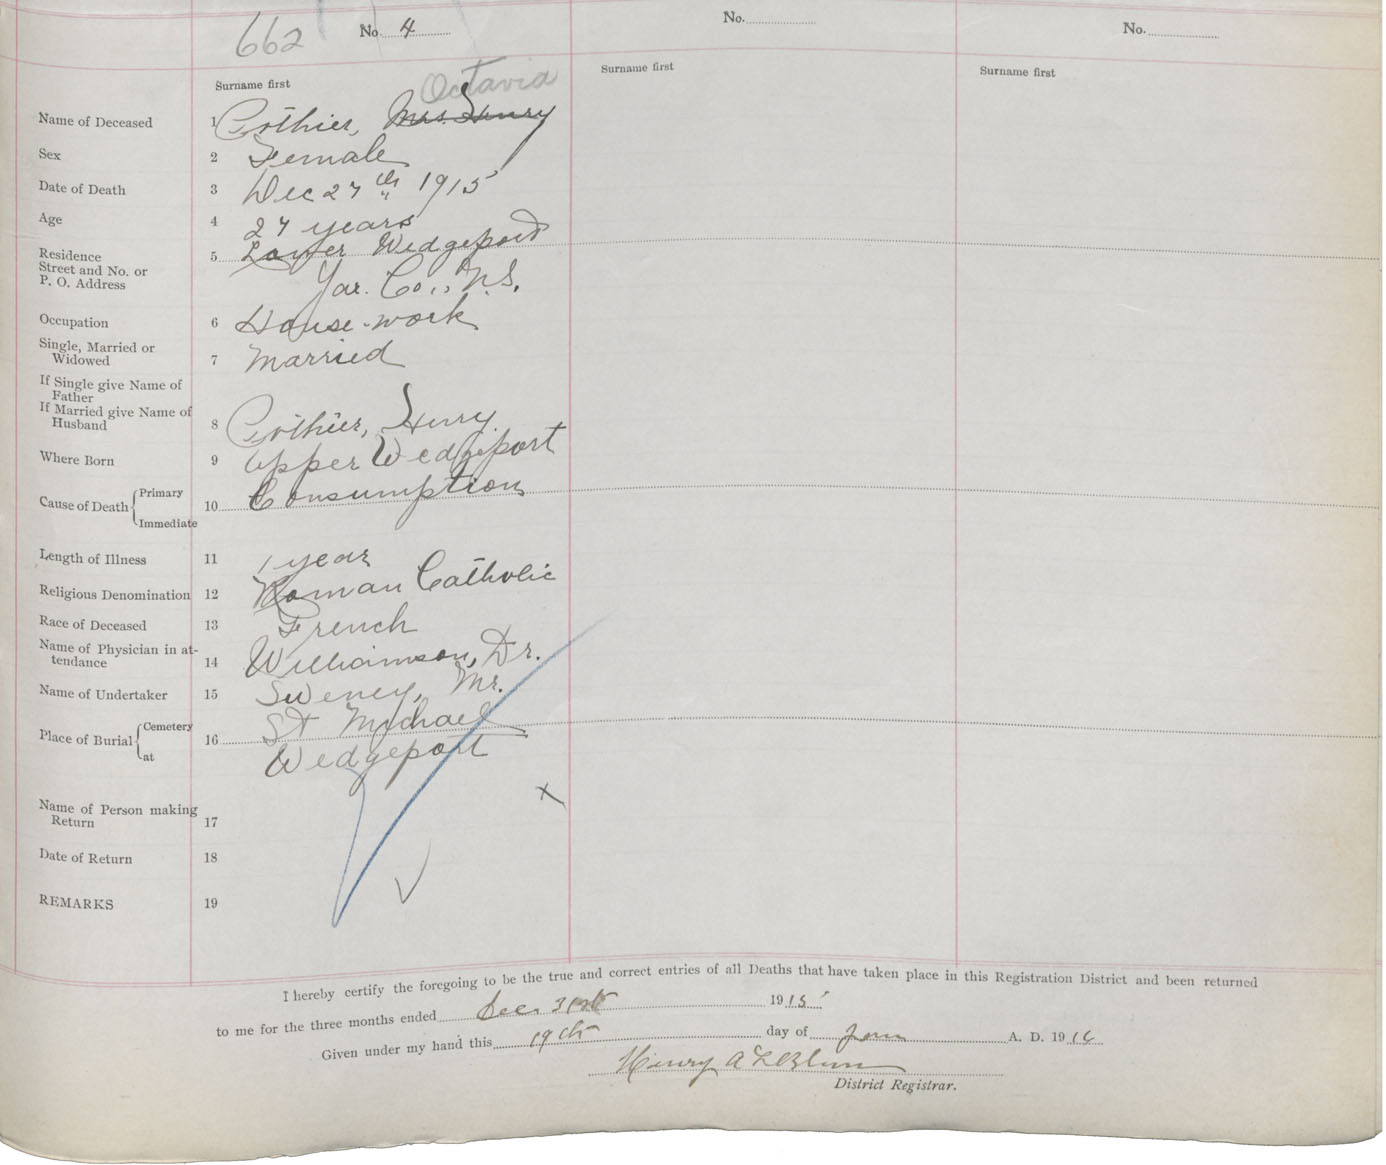 662 No. 4 No. No.
Surname first Surname first Surname first
Octavia
Name of Deceased 1 Pothier, Mrs. Henry
Sex 2 Female
Date of Death 3 Dec 27th 1915
Age 4 27 years
Residence
Street and No. or
P. O. Address
5 Lower Wedgeport
Yar. Co., N.S.
Occupation 6 House-work
Single, Married or
Widowed
7 Married
If Single give Name of
Father
If Married give Name of
Husband
8 Pothier, Henry.
Where Born 9 Upper Wedgeport
Cause of Death Primary
Immediate
10 Consumption
Length of Illness 11 1 year
Religious Denomination 12 Roman Catholic
Race of Deceased 13 French
Name of Physician in at-
tendance
14 Williamson, Dr.
Name of Undertaker 15 Sweney, Mr.
Place of Burial Cemetery
at
16 St Michael
Wedgeport
x
Name of Person making
Return
17
Date of Return 18
REMARKS 19
I hereby certify the foregoing to be the true and correct entries of all Deaths that have taken place in this Registration District and been returned
to me for the three months ended Dec. 31st 1915
Given under my hand this 19th day of Jan A. D. 1916
Henry A LeBlanc
District Registrar.